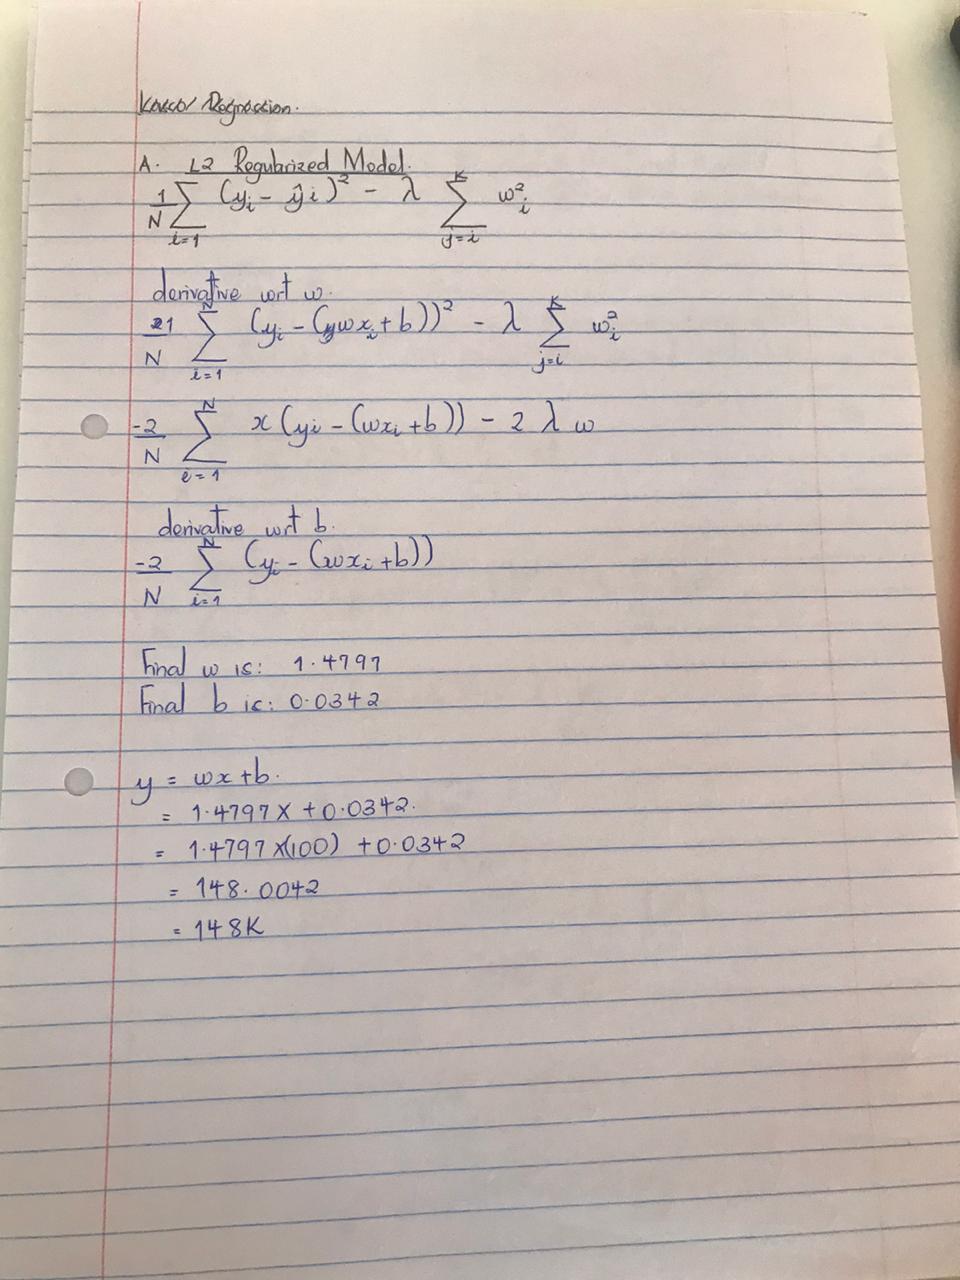 Regression.
A. L2 Regularized Model.
1/N ∑ i=1 (yi - ŷi)² - λ ∑ K j=i w²i
derivative wrt w.
1/N ∑ N i=1 (yi - (wxi + b))² - λ ∑ K j=i w²i
-2/N ∑ N i=1 x (yi - (wxi + b)) - 2 λ w
derivative wrt b.
-2/N ∑ N i=1 (yi - (wxi + b))
Final w is: 1.4797
Final b is: 0.0342
y = wx + b.
= 1.4797X + 0.0342.
= 1.4797 x(100) + 0.0342
= 148.0042
= 148K